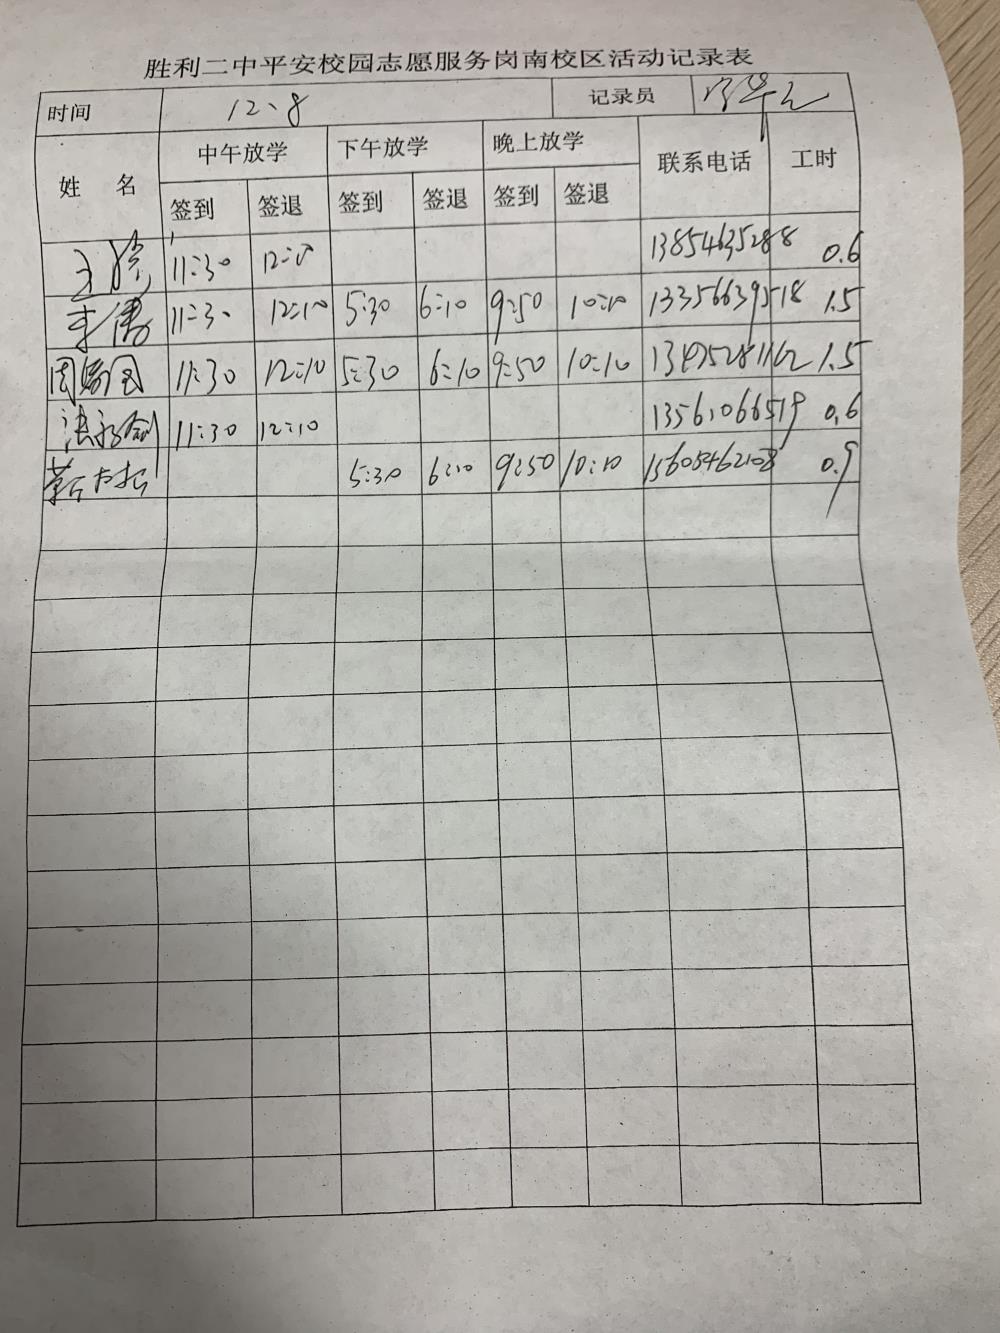 胜利二中平安校园志愿服务岗南校区活动记录表
时间 12、8 记录员
姓 名 中午放学 下午放学 晚上放学 联系电话 工时
签到 签退 签到 签退 签到 签退
11:30 13854635288 0.6
11:30 12:10 5:30 6:10 9:50 10:10 13356639518 1.5
11:30 12:10 5:30 6:10 9:50 10:10 1.5
11:30 12:10 13561066519 0.6
5:30 6:10 9:50 10:10 0.9